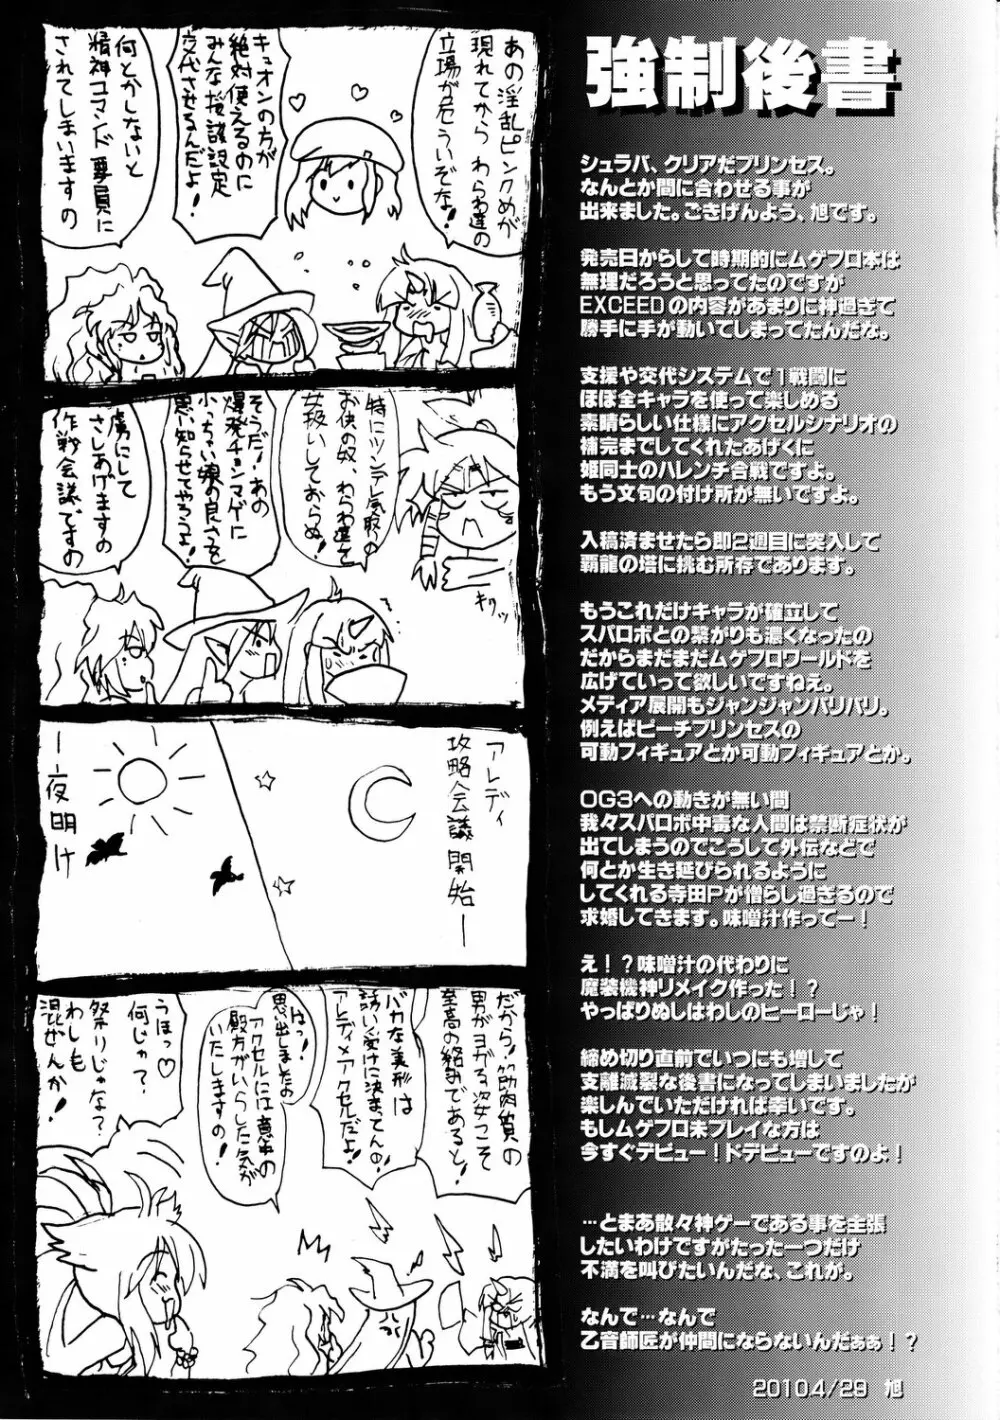 強制後書
シュラバ、クリアだプリンセス。
なんとか間に合わせる事が
出来ました。ごきげんよう、旭です。
発売日からして時期的にムゲフロ本は
無理だろうと思ってたのですが
EXCEEDの内容があまりに神過ぎて
勝手に手が動いてしまってたんだな。
支援や交代システムで1戦闘に
ほぼ全キャラを使って楽しめる
素晴らしい仕様にアクセルシナリオの
補完までしてくれたあげくに
姫同士のハレンチ合戦ですよ。
もう文句の付け所が無いですよ。
入稿済ませたら即2週目に突入して
覇龍の塔に挑む所存であります。
もうこれだけキャラが確立して
スパロボとの繋がりも濃くなったの
だからまだまだムゲフロワールドを
広げていって欲しいですねえ。
メディア展開もジャンジャンバリバリ。
例えばピーチプリンセスの
可動フィギュアとか可動フィギュアとか。
OG3への動きが無い間
我々スパロボ中毒な人間は禁断症状が
出てしまうのでこうして外伝などで
何とか生き延びられるように
してくれる寺田Pが憎らし過ぎるので
求婚してきます。味噌汁作ってー！
え！？味噌汁の代わりに
魔装機神リメイク作った！？
やっぱりぬしはわしのヒーローじゃ！
締め切り直前でいつにも増して
支離滅裂な後書になってしまいましたが
楽しんでいただければ幸いです。
もしムゲフロ未プレイな方は
今すぐデビュー！ドデビューですのよ！
…とまあ散々神ゲーである事を主張
したいわけですがたった一つだけ
不満を叫びたいんだな、これが。
なんで…なんで
乙音師匠が仲間にならないんだぁぁ！？
2010.4/29　旭
あの淫乱ピンクめが
現れてから わらわ達の
立場が危ういぞな！
キュオンの方が
絶対使えるのに
みんな桜設定
交代させるんだよ！
何とかしないと
精神コマンド要員に
されてしまいますの
特にツンデレ気取の
お供の奴、わらわ達を
女扱いしておらぬ！
キリッ
そうだ！あの
爆発チョンマゲに
小っちゃい娘の良さを
思い知らせてやろうよ！
虜にして
さしあげますの
作戦会議ですの
アレディ
攻略会議開始ー
ー夜明け
だから！筋肉質の
男がヨガる姿こそ
至高の絡みであると！
バカな美形は
誘い受けに決まってんの！
アレディ×アクセルだよ！
はっ！
思い出しましたの
アクセルには意中の
殿方がいらした気が
いたしますの！
うほっ♡
何じゃ？
祭りじゃな？
わしも
混ぜんか！